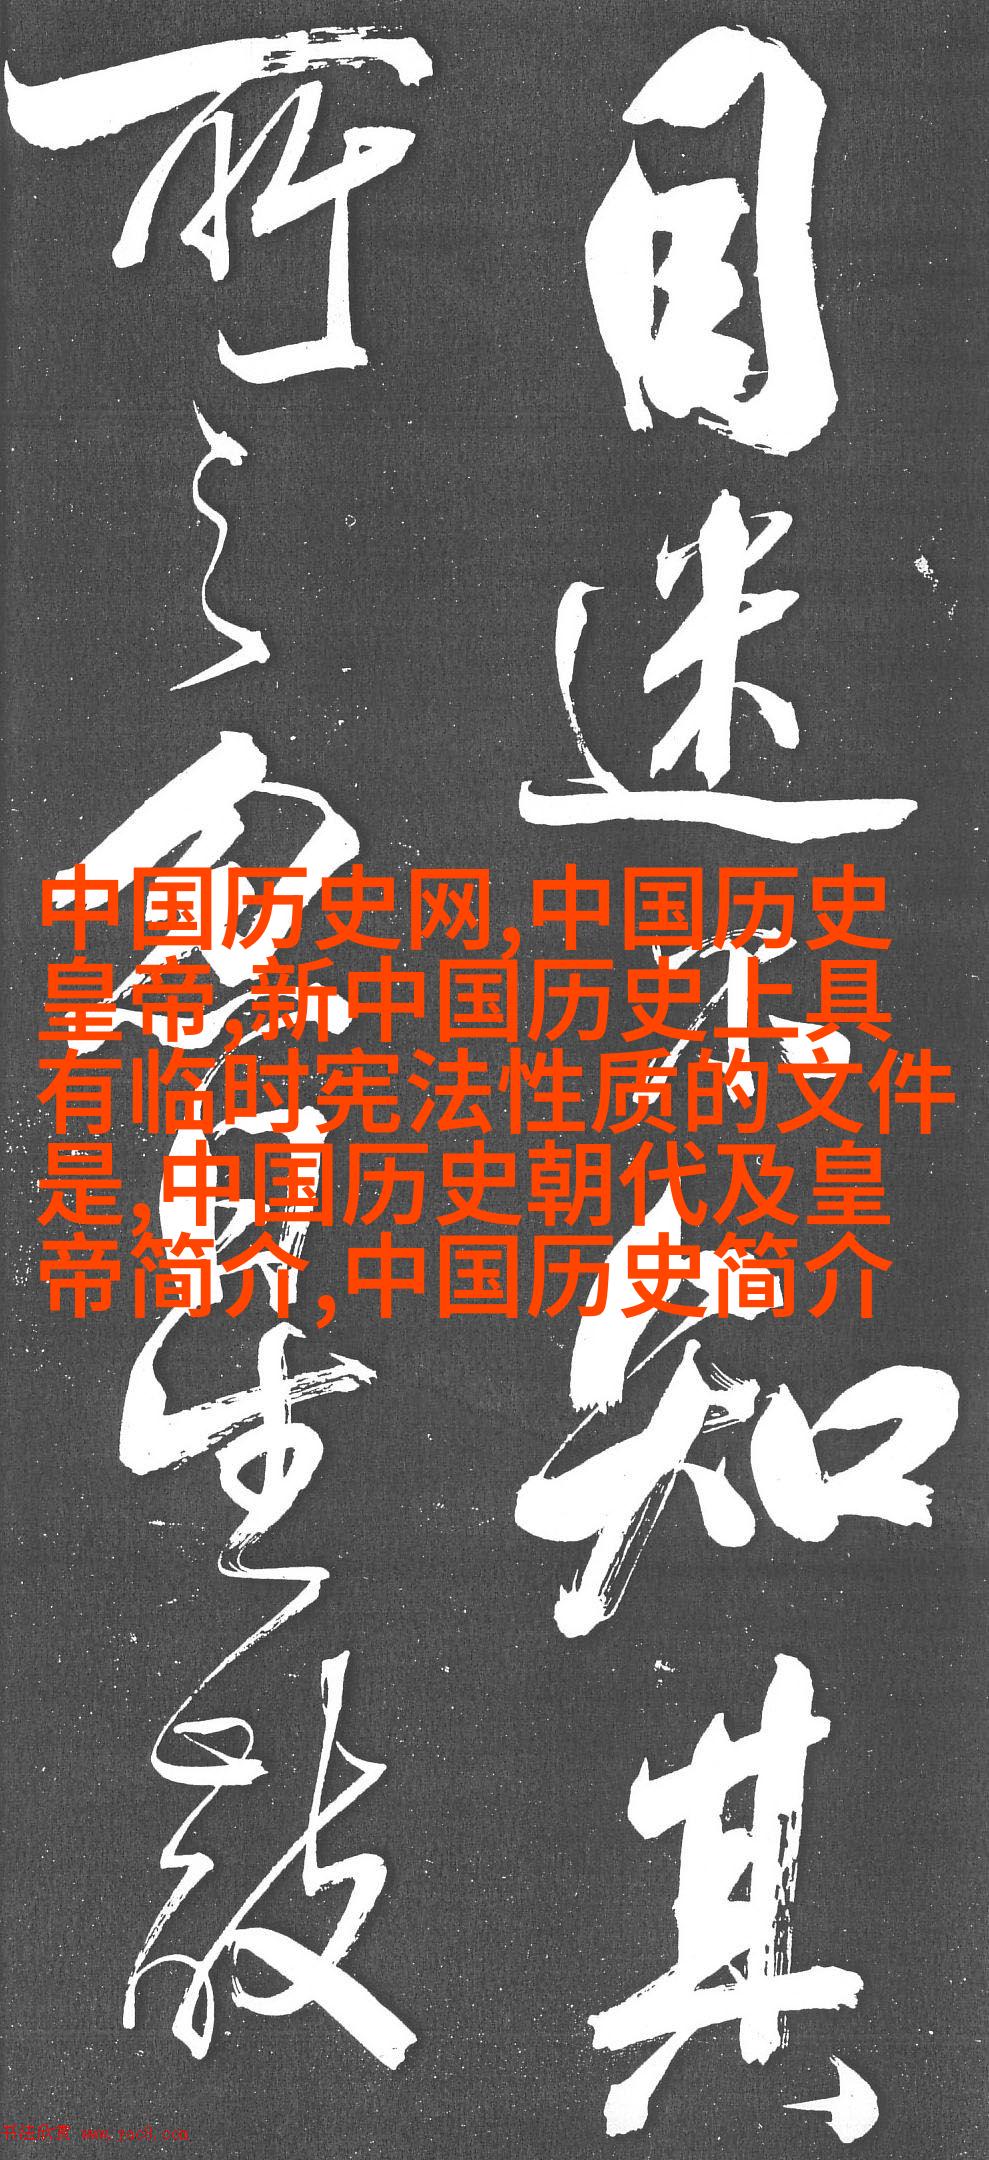 目迷不知其
所之
中国历史网,中国历史
皇帝,新中国历史上具
有临时宪法性质的文件
是,中国历史朝代及皇
帝简介,中国历史简介
书法欣赏